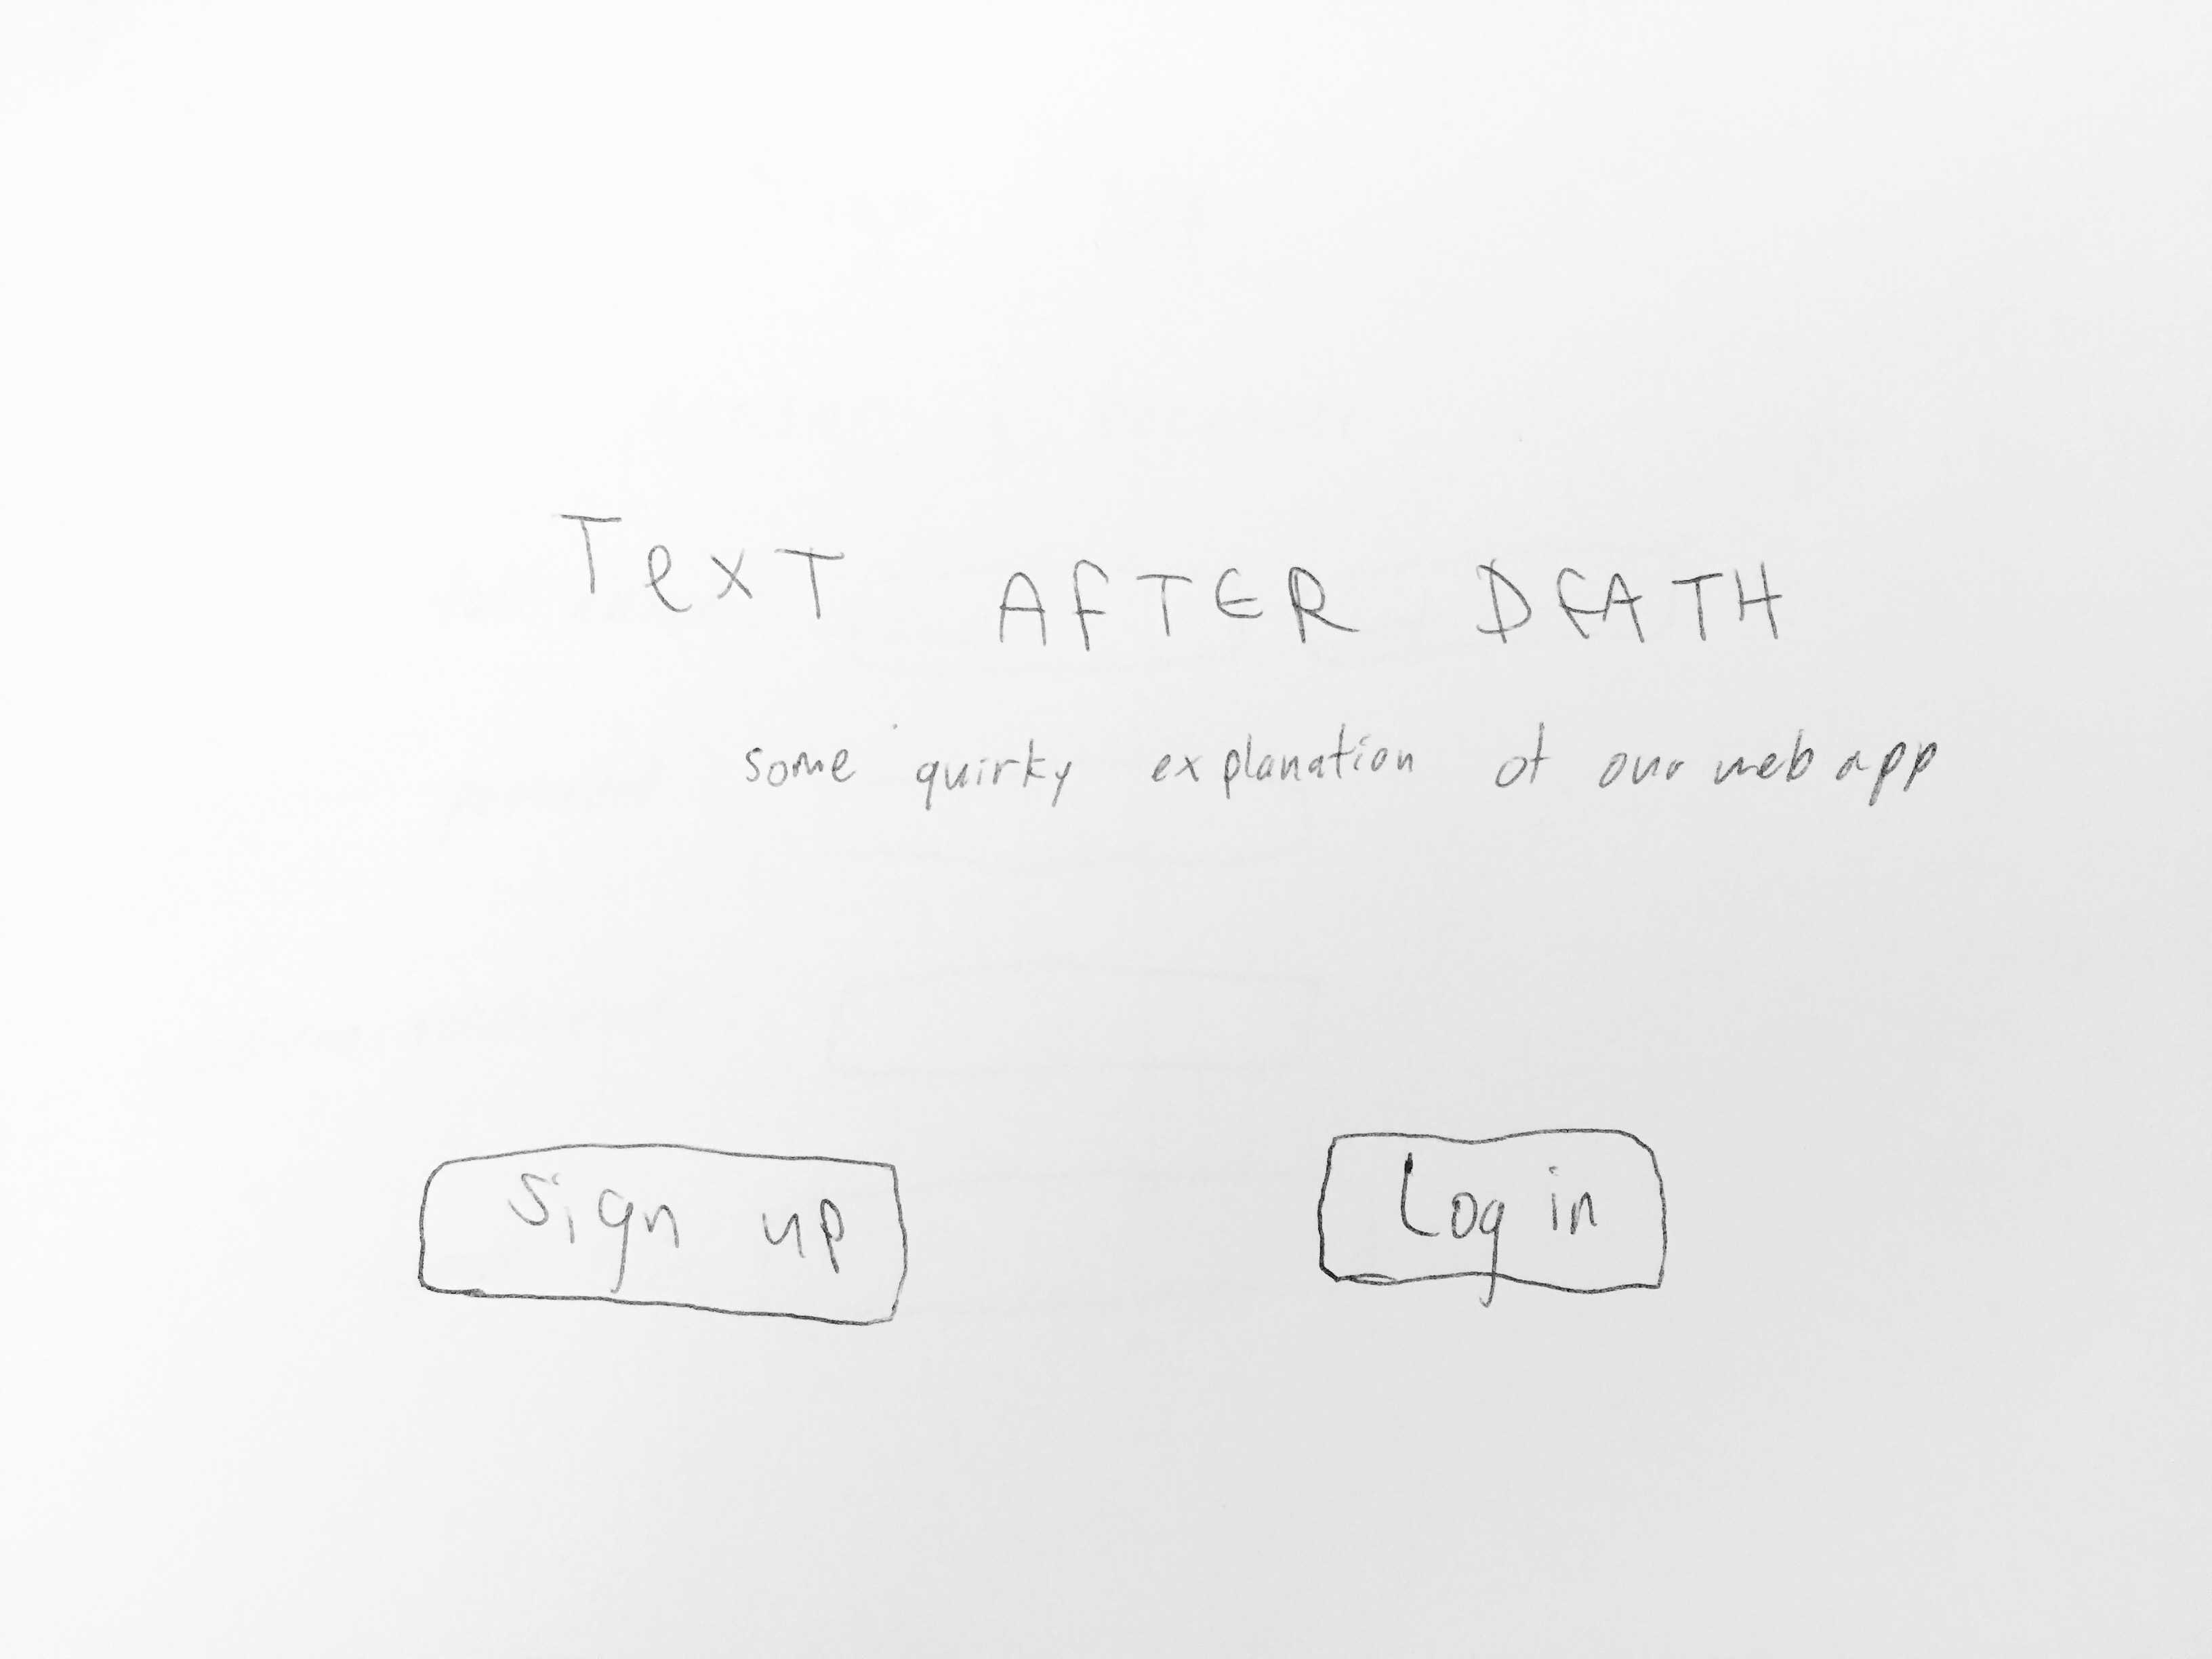 TexT AFTER DEATH
some quirky explanation of our web app
Sign up
Log in